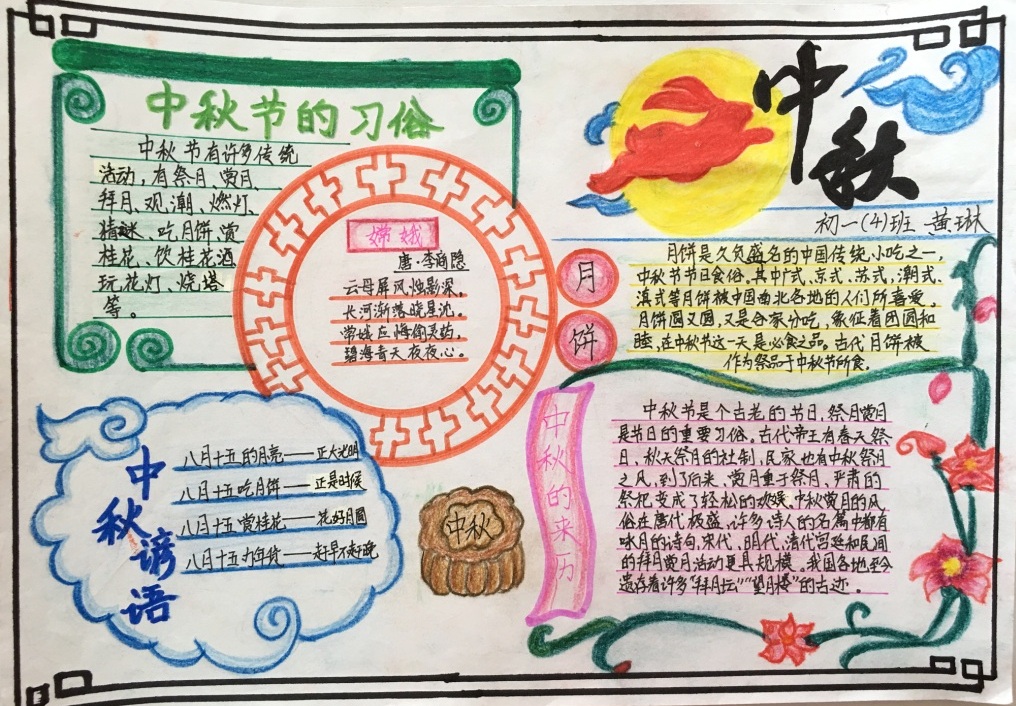 中秋节的习俗
中秋节有许多传统
活动，有祭月、赏月、
拜月、观潮、燃灯、
猜谜、吃月饼、赏
桂花、饮桂花酒
玩花灯、烧塔
等。
嫦娥
唐·李商隐
云母屏风烛影深，
长河渐落晓星沉。
常娥应悔偷灵药，
碧海青天夜夜心。
中秋
初一(4)班 黄琳
月饼
月饼是久负盛名的中国传统小吃之一，
中秋节节日食俗。其中广式、京式、苏式，潮式、
滇式等月饼被中国南北各地的人们所喜爱。
月饼圆又圆，又是合家分吃，象征着团圆和
睦，在中秋节这一天是必食之品。古代月饼被
作为祭品于中秋节所食。
中秋谚语
八月十五的月亮——正大光明
八月十五吃月饼——正是时候
八月十五赏桂花——花好月圆
八月十五办年货——赶早不赶晚
中秋
中秋的来历
中秋节是个古老的节日，祭月赏月
是节日的重要习俗。古代帝王有春天祭
日，秋天祭月的社制，民家也有中秋祭月
之风，到了后来，赏月重于祭月，严肃的
祭祀变成了轻松的欢娱。中秋赏月的风
俗在唐代极盛，许多诗人的名篇中都有
咏月的诗句，宋代、明代、清代宫廷和民间
的拜月赏月活动更具规模。我国各地至今
遗存着许多“拜月坛”“望月楼”的古迹。